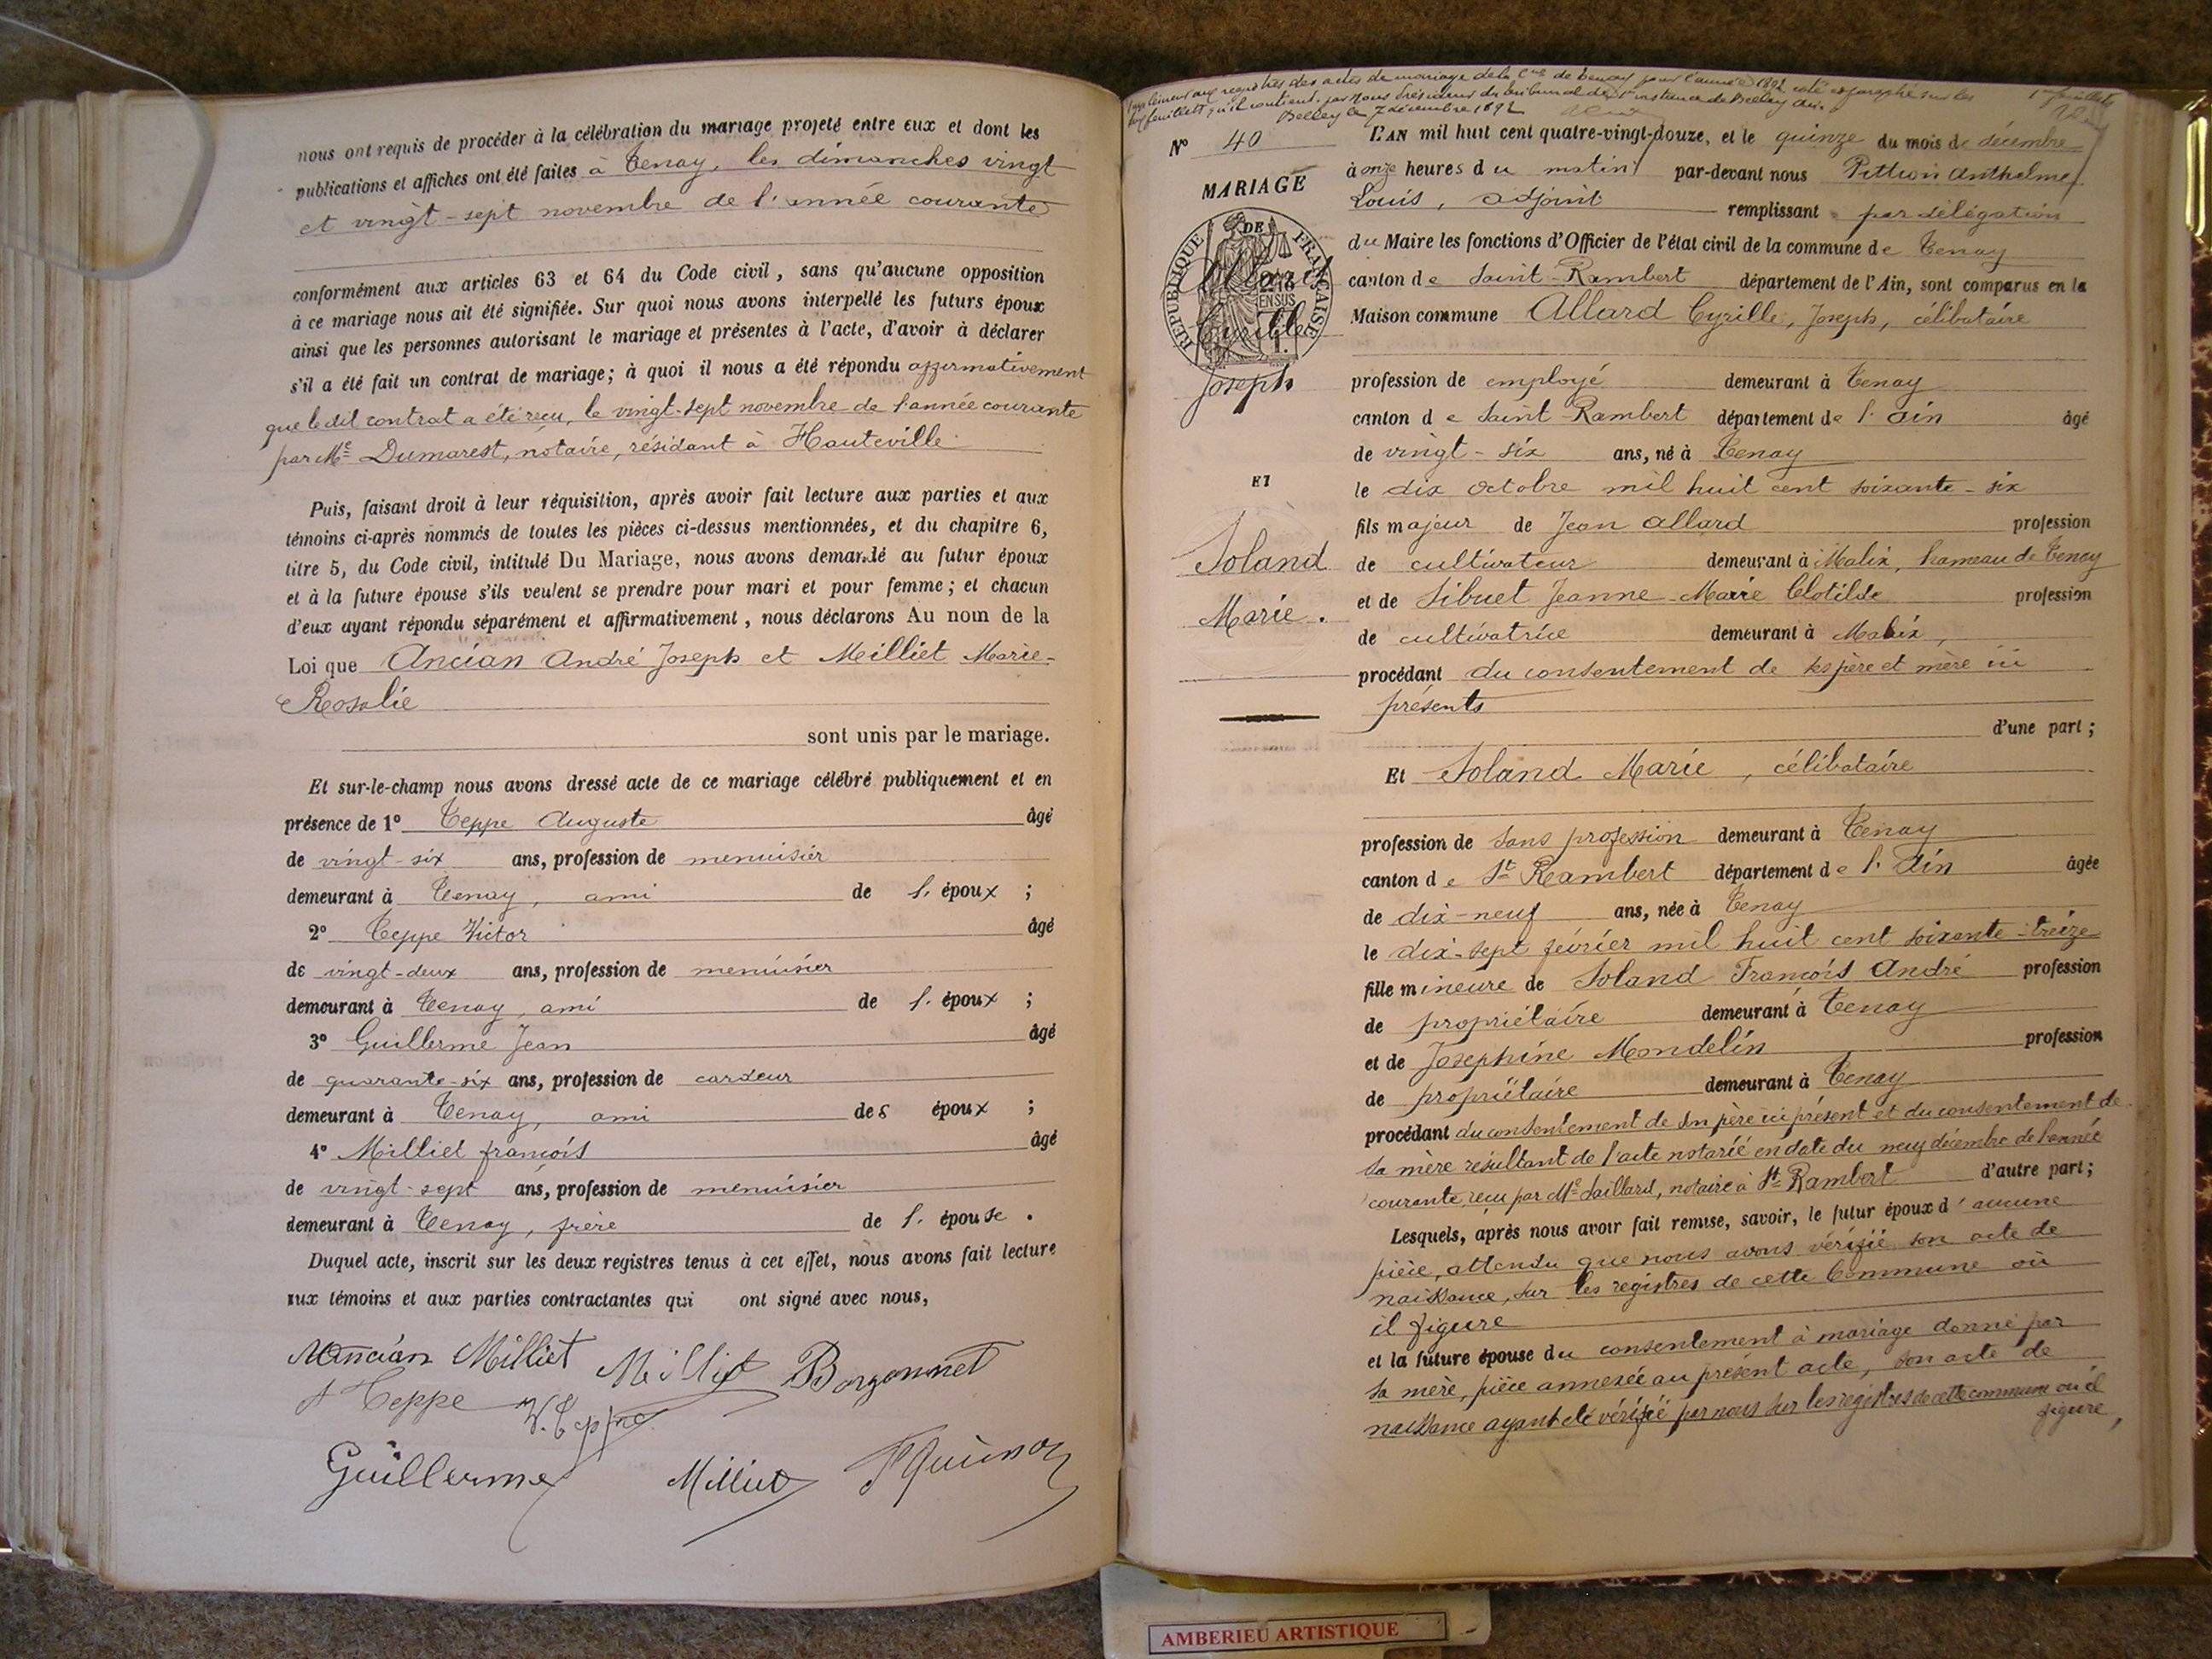 nous ont requis de procéder à la célébration du mariage projeté entre eux et dont les
publications et affiches ont été faites à Tenay, les dimanches vingt
et vingt-sept novembre de l'année courante
conformément aux articles 63 et 64 du Code civil, sans qu'aucune opposition
à ce mariage nous ait été signifiée. Sur quoi nous avons interpellé les futurs époux
ainsi que les personnes autorisant le mariage et présentes à l'acte, d'avoir à déclarer
s'il a été fait un contrat de mariage; à quoi il nous a été répondu affirmativement
que le dit contrat a été reçu, le vingt-sept novembre de l'année courante
par Me Dumarest, notaire, résidant à Hauteville
Puis, faisant droit à leur réquisition, après avoir fait lecture aux parties et aux
témoins ci-après nommés de toutes les pièces ci-dessus mentionnées, et du chapitre 6,
titre 5, du Code civil, intitulé Du Mariage, nous avons demandé au futur époux
et à la future épouse s'ils veulent se prendre pour mari et pour femme; et chacun
d'eux ayant répondu séparément et affirmativement, nous déclarons Au nom de la
Loi que Ancian André Joseph et Milliet Marie-
Rosalie
sont unis par le mariage.
Et sur-le-champ nous avons dressé acte de ce mariage célébré publiquement et en
présence de 1° Teppe Auguste âgé
de vingt-six ans, profession de menuisier
demeurant à Tenay, ami de l'époux ;
2° Teppe Victor âgé
de vingt-deux ans, profession de menuisier
demeurant à Tenay, ami de l'époux ;
3° Guillerme Jean âgé
de quarante-six ans, profession de cardeur
demeurant à Tenay, ami des époux ;
4° Milliet françois âgé
de vingt-sept ans, profession de menuisier
demeurant à Tenay, frère de l'épouse.
Duquel acte, inscrit sur les deux registres tenus à cet effet, nous avons fait lecture
aux témoins et aux parties contractantes qui ont signé avec nous,
Ancian Milliet Milliet
Teppe V. Teppe
Guillerme Milliet
Supplément aux registres des actes de mariage de la Cne de Tenay pour l'année 1892 coté et paraphé sur les
feuillets qu'il contient par Nous Président du tribunal de 1re instance de Belley Ain.
Belley le 7 décembre 1892
N° 40
MARIAGE
DE
REPUBLIQUE FRANÇAISE
Allard
Cyrille
Joseph
ET
Soland
Marie.
L'AN mil huit cent quatre-vingt-douze, et le quinze du mois de décembre
à onze heures du matin par-devant nous Pittion Anthelme
Louis, adjoint remplissant par délégation
du Maire les fonctions d'Officier de l'état civil de la commune de Tenay
canton de Saint-Rambert département de l'Ain, sont comparus en la
Maison commune Allard Cyrille, Joseph, célibataire
profession de employé demeurant à Tenay
canton de Saint-Rambert département de l'Ain âgé
de vingt-six ans, né à Tenay
le dix octobre mil huit cent soixante-six
fils majeur de Jean Allard profession
de cultivateur demeurant à Malix, hameau de Tenay
et de Sibuet Jeanne-Marie Clotilde profession
de cultivatrice demeurant à Malix,
procédant du consentement de ses père et mère ici
présents
d'une part;
Et Soland Marie, célibataire
profession de sans profession demeurant à Tenay
canton de St Rambert département de l'Ain âgée
de dix-neuf ans, née à Tenay
le dix-sept février mil huit cent soixante-treize
fille mineure de Soland François André profession
de propriétaire demeurant à Tenay
et de Joséphine Mondelin profession
de propriétaire demeurant à Tenay
procédant du consentement de son père ici présent et du consentement de
sa mère résultant de l'acte notarié en date du neuf décembre de l'année
courante, reçu par Me Saillard, notaire à St Rambert d'autre part;
Lesquels, après nous avoir fait remise, savoir, le futur époux d'aucune
pièce, attendu que nous avons vérifié son acte de
naissance, sur les registres de cette Commune où
il figure
et la future épouse du consentement à mariage donné par
sa mère, pièce annexée au présent acte, son acte de
naissance ayant été vérifié par nous sur les registres de cette commune où il
figure,
AMBERIEU ARTISTIQUE